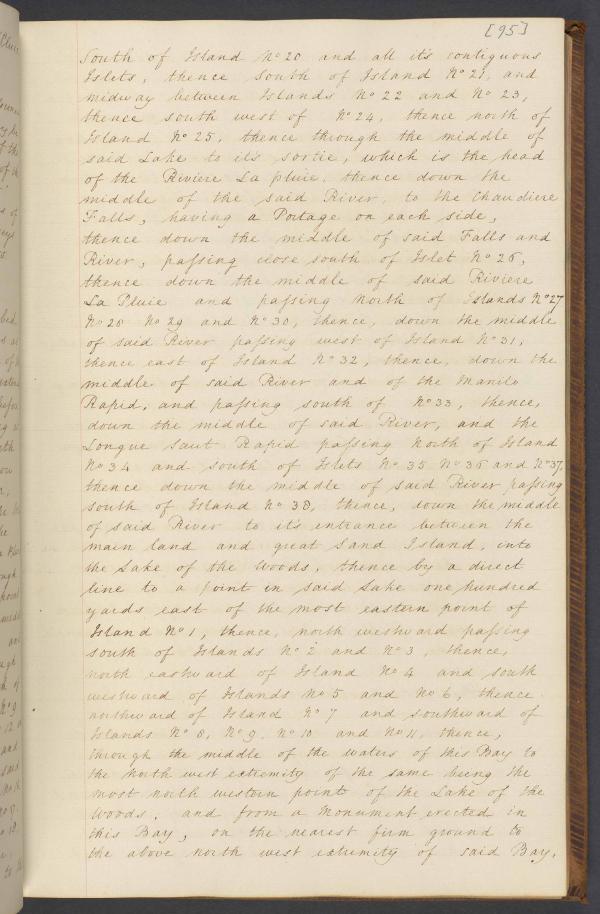 [95]
South of Island No 20 and all it's contiguous
Islets, thence south of Island No 21, and
midway between Islands No 22 and No 23,
thence south west of No 24, thence north of
Island No 25, thence through the middle of
said Lake to it's sortie, which is the head
of the Riviere La pluie, thence down the
middle of the said River, to the Chaudiere
Falls, having a Portage on each side,
thence down the middle of said Falls and
River, passing close south of Islet No 26,
thence down the middle of said Riviere
La Pluie and passing north of Islands No 27
No 28 No 29 and No 30, thence, down the middle
of said River passing west of Island No 31,
thence east of Island No 32, thence, down the
middle of said River and of the Manito
Rapid, and passing south of No 33, thence,
down the middle of said River, and the
Longue Saut Rapid passing north of Island
No 34 and south of Islets No 35 No 36 and No 37,
thence down the middle of said River passing
south of Island No 38, thence, down the middle
of said River to it's entrance between the
main land and great Sand Island, into
the Lake of the Woods, thence by a direct
line to a point in said Lake one hundred
yards east of the most eastern point of
Island No 1, thence, north westward passing
south of Islands No 2 and No 3, thence,
north eastward of Island No 4 and south
westward of Islands No 5 and No 6, thence
northward of Island No 7 and southward of
Islands No 8, No 9, No 10 and No 11, thence,
through the middle of the waters of this Bay to
the north west extremity of the same being the
most north western point of the Lake of the
Woods, and from a Monument erected in
this Bay, on the nearest firm ground to
the above north west extremity of said Bay,